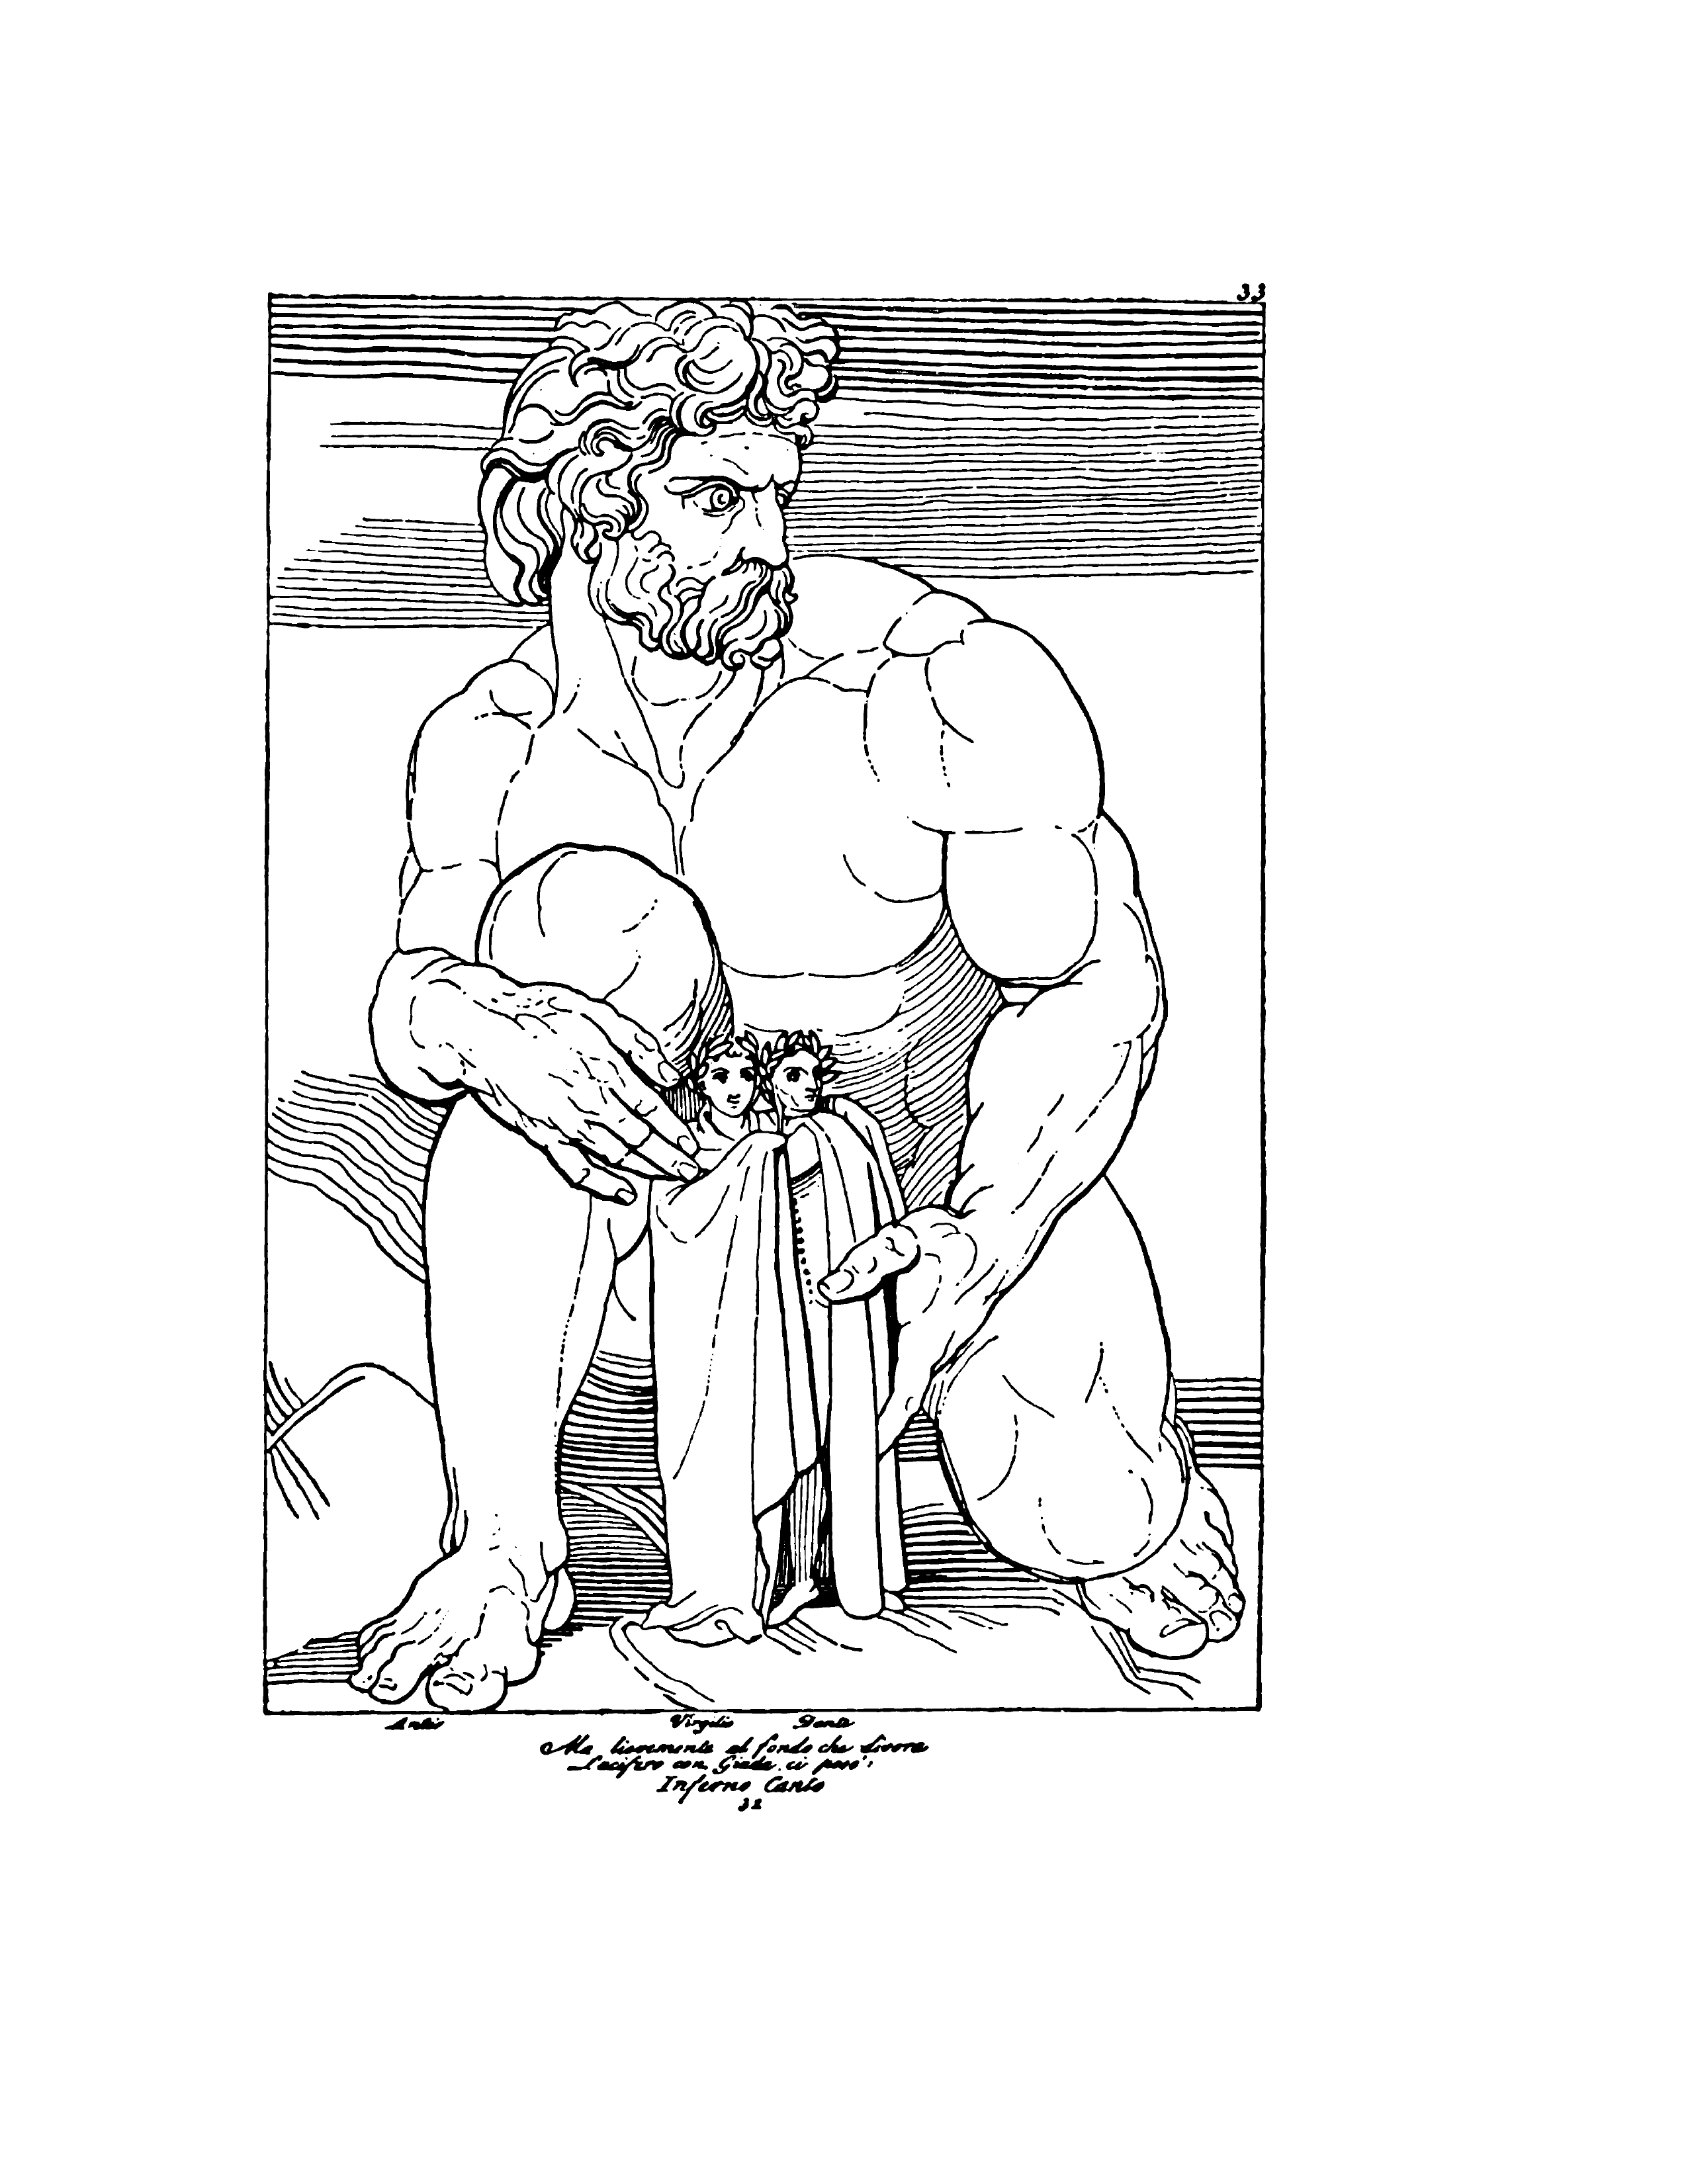 33
Anteo
Virgilio Dante
Ma lievemente al fondo che divora
Lucifero con Giuda, ci posò:
Inferno Canto
31